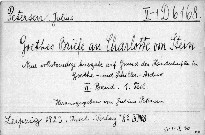 Petersen, Julius II-1D6168.
Goethes Briefe an Charlotte von Stein
Neue vollständige Ausgabe auf Grund der Handschriften im
Goethe- und Schiller-Archiv
II Band. 1. Teil
Herausgegeben von Julius Petersen
Leipzig 1923. Insel-Verlag 8°